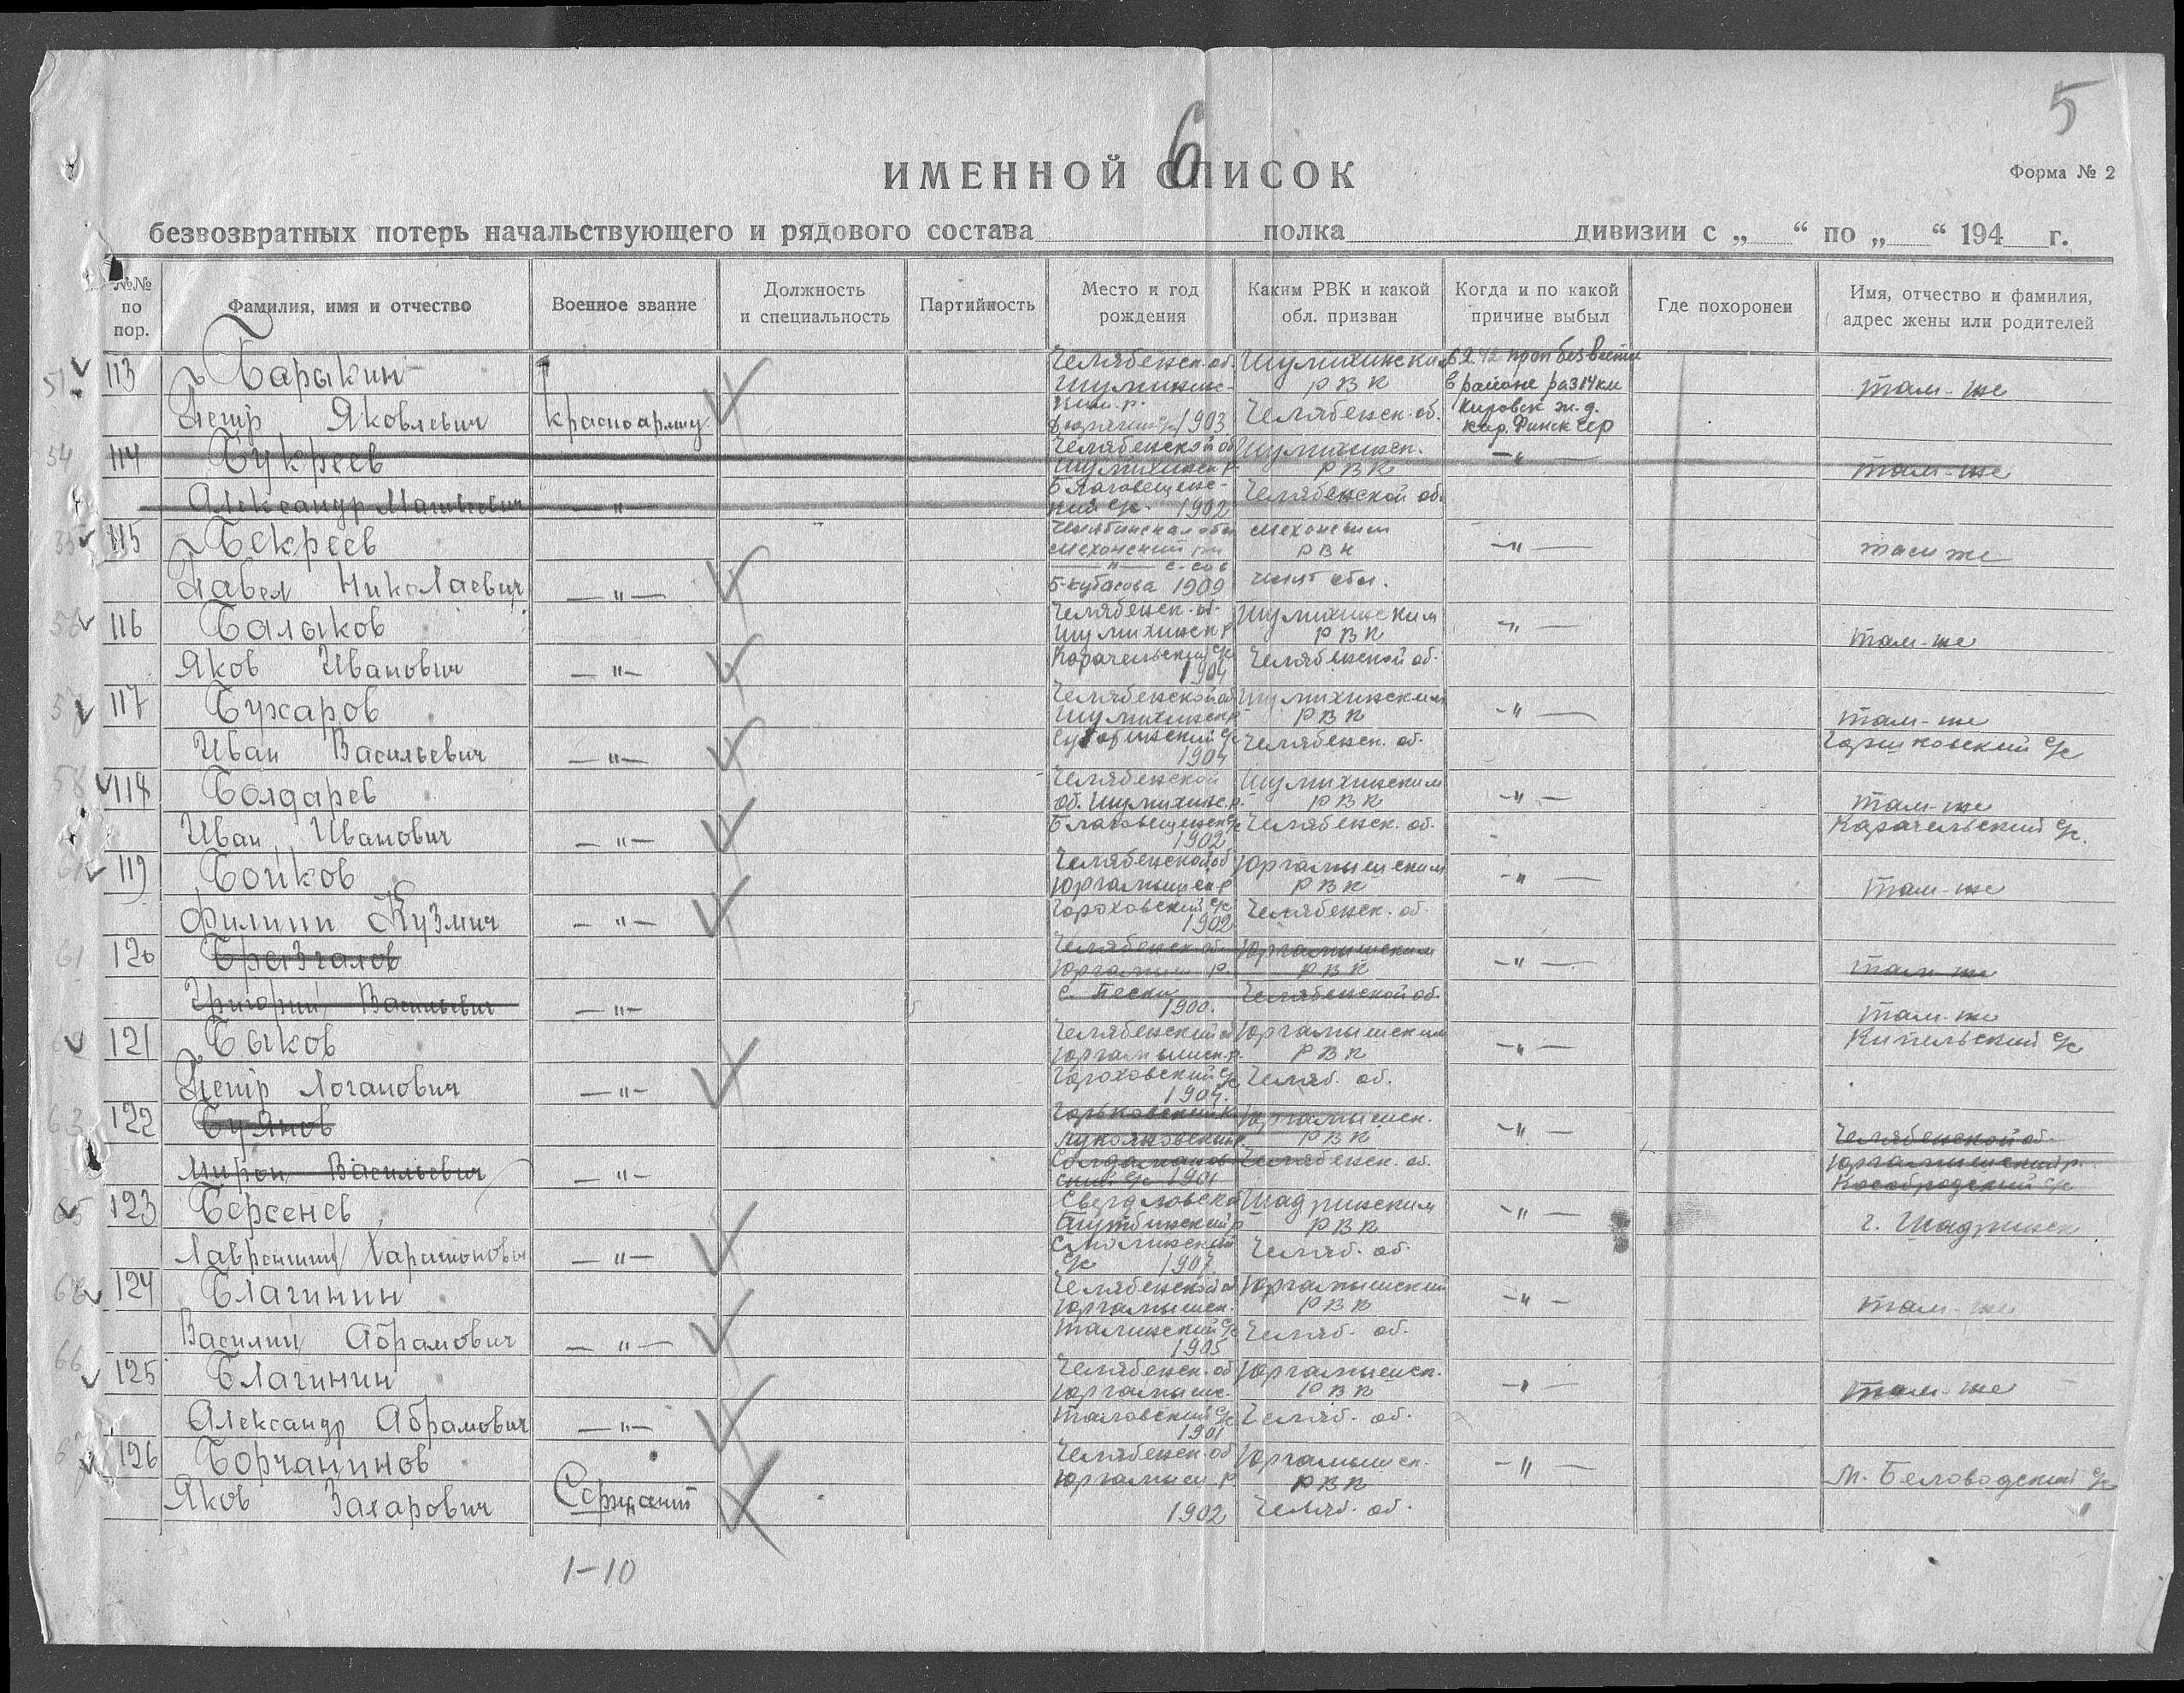 5
6
ИМЕННОЙ СПИСОК
Форма № 2
безвозвратных потерь начальствующего и рядового состава полка дивизии с „ “ по „ “ 194 г.
№№ по пор.
Фамилия, имя и отчество
Военное звание
Должность и специальность
Партийность
Место и год рождения
Каким РВК и какой обл. призван
Когда и по какой причине выбыл
Где похоронен
Имя, отчество и фамилия, адрес жены или родителей
113 Барыкин Челябенск. об. Шумихински 6.2.42 проп без вести
РВК в районе раз 14 км там-же
Петр Яковлевич красноармец 1903 Челябенск. об. Кировск ж.д.
Кар. Финск ССР
54 114 Букреев Челябенской об Шумихинск. -"-
Шумихинск р РВК там-же
Александр Матвеевич -"- Благовещенс-
кий с/с. 1902 Челябенской об.
115 Бекреев Челябинская обл мехонским
мехонский рн РВК -"- там же
Павел Николаевич -"- Б-кубасова 1909 челяб обл.
116 Балаков Челябенск. об. Шумихинским
Шумихинск р РВК -"- там-же
Яков Иванович -"- Карачельский с/с Челябенской об.
1904
117 Бухаров Челябенской об Шумихинским
Шумихинск р РВК -"- там-же
Иван Васильевич -"- Челябенск. об. с/с
1904
58 118 Болдарев Челябенской Шумихинским
об. Шумихинс. р. РВК -"- там-же
Иван Иванович -"- Благовещенск с/с Челябенск. об. Карачельский с/с.
1902
119 Бойков Челябенской об Юргамышским
Юргамышск р РВК -"- там-же
Филипп Кузмич -"- Гороховский с/с Челябенск. об.
1902
61 120 Бразгалов Челябенск об. Юргамышским
Юргамыш р. РВК -"- там же
Григорий Васильевич -"- с. Пески Челябенской об.
1900. там-же
121 Быков Челябенский об Юргамышским Кипельский с/с
Юргамышск. р. РВК -"-
Петр Логанович -"- Гороховский с/с Челяб. об.
1904.
63 122 Буянов Горьковский к. Юргамышск.
Лукояновский р. РВК -"- Челябенской об.
Мирон Васильевич -"- Челябенск. об. Юргамышский р.
с/с 1901 Кособродский с/с
65 123 Берсенев Свердловско Шадринским
р РВК -"- г. Шадринск
Лаврентий Харитонович -"- Смолинский Челяб. об.
с/с 1907.
124 Благинин Челябенской об Юргамышский
Юргамышск. РВК -"- там-же
Василий Абрамович -"- с/с Челяб. об.
1905
66 125 Благинин Челябенск. об Юргамышск.
Юргамышс. РВК -"- там-же
Александр Абрамович -"- Таловский с/с Челяб. об.
1901
126 Борчанинов Челябенск. об Юргамышск.
Юргамыш. р. РВК -"- М. Беловодский с/с
Яков Захарович Сержант 1902 Челяб. об.
1-10